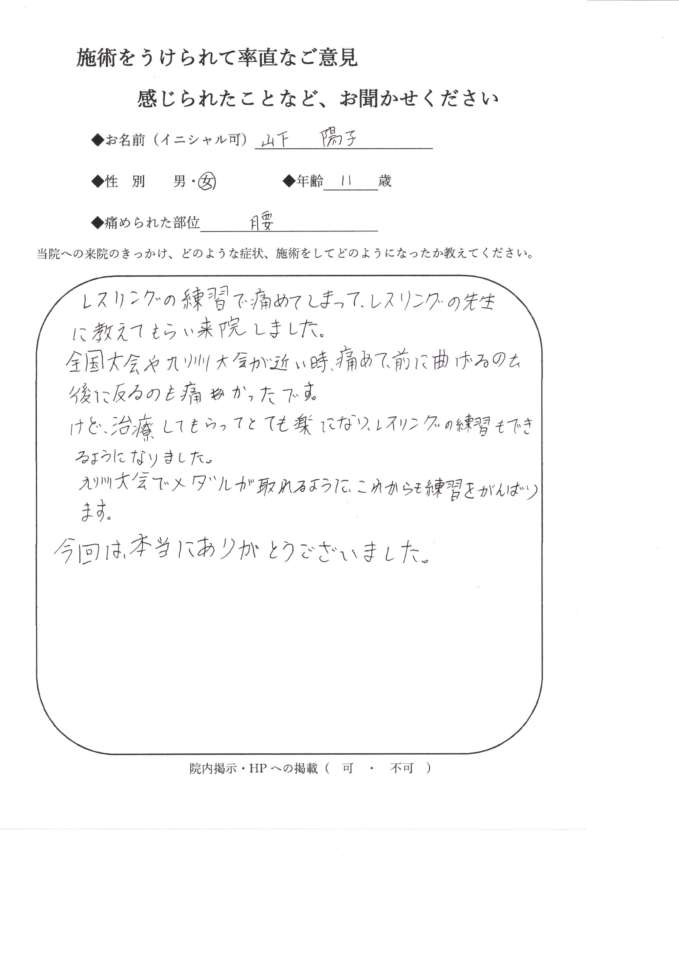 施術をうけられて率直なご意見
感じられたことなど、お聞かせください
◆お名前（イニシャル可） 山下 陽子
◆性 別 男・女 ◆年齢 11 歳
◆痛められた部位 腰
当院への来院のきっかけ、どのような症状、施術をしてどのようになったか教えてください。
レスリングの練習で痛めてしまって、レスリングの先生
に教えてもらい来院しました。
全国大会や九州大会が近い時、痛めて、前に曲げるのも
後に反るのも痛かったです。
けど、治療してもらってとても楽になり、レスリングの練習もでき
るようになりました。
九州大会でメダルが取れるように、これからも練習をがんばり
ます。
今回は、本当にありがとうございました。
院内掲示・HPへの掲載（ 可 ・ 不可 ）